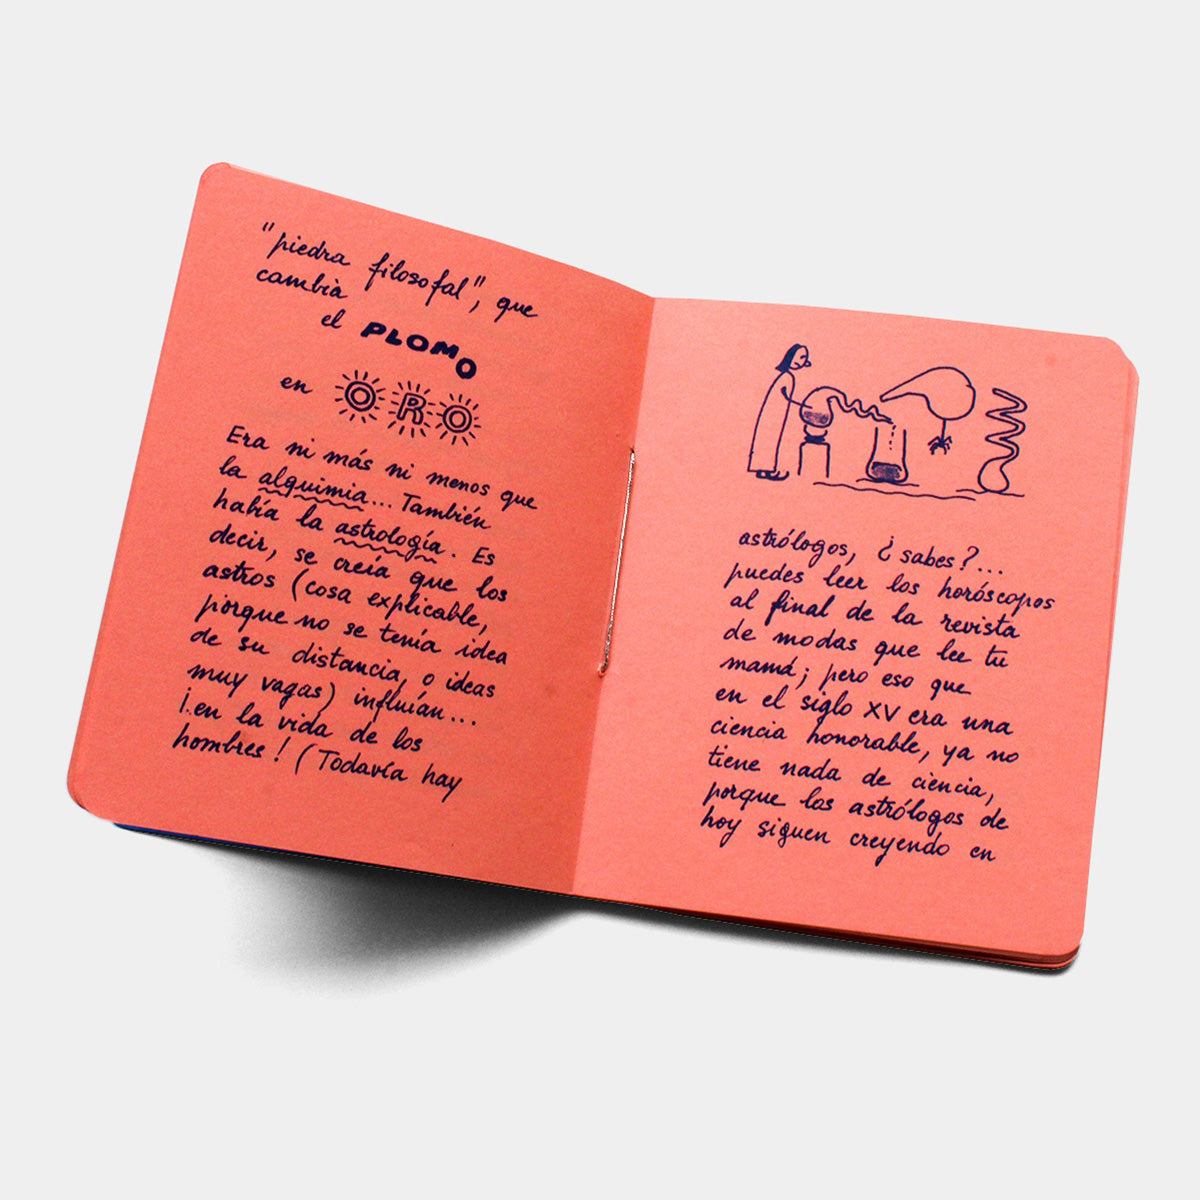 "piedra filosofal", que
cambia
el PLOMO
en ORO
Era ni más ni menos que
la alquimia... También
había la astrología. Es
decir, se creía que los
astros (cosa explicable,
porque no se tenía idea
de su distancia, o ideas
muy vagas) influían...
¡en la vida de los
hombres! (Todavía hay
astrólogos, ¿sabes?...
puedes leer los horóscopos
al final de la revista
de modas que lee tu
mamá; pero eso que
en el siglo XV era una
ciencia honorable, ya no
tiene nada de ciencia,
porque los astrólogos de
hoy siguen creyendo en